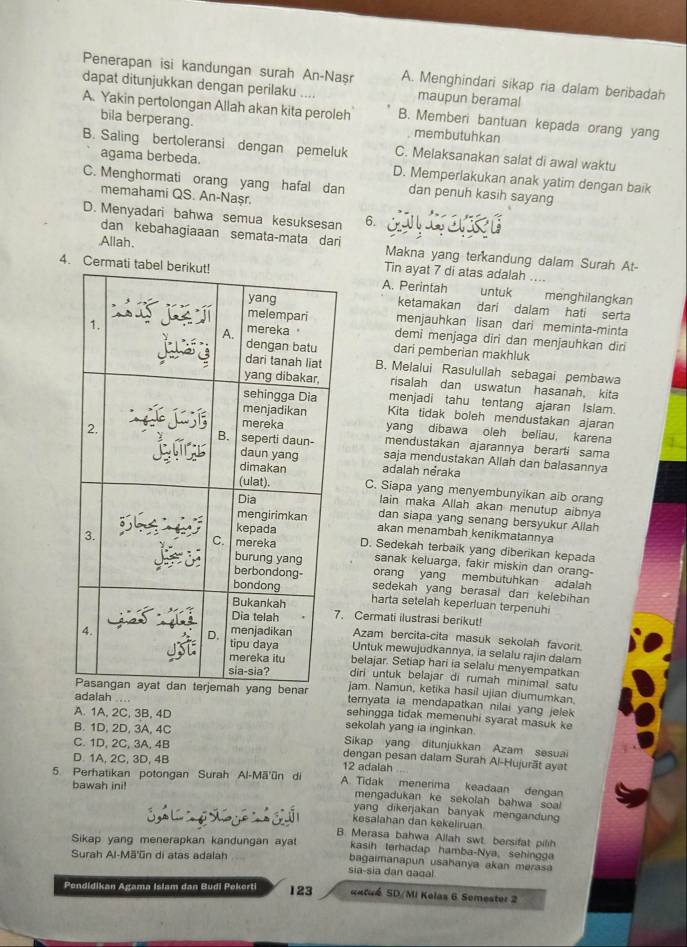 Penerapan isi kandungan surah An-Naṣr
dapat ditunjukkan dengan perilaku ....
A. Yakin pertolongan Allah akan kita peroleh
bila berperang.
B. Saling bertoleransi dengan pemeluk
agama berbeda.
C. Menghormati orang yang hafal dan
memahami QS. An-Naṣr.
D. Menyadari bahwa semua kesuksesan
dan kebahagiaaan semata-mata dari
Allah.
4. Cermati tabel berikut!
1. اَلَمْ يَجْعَلْ كَيْدَهُمْ
فِيْ تَضْلِيْلٍ
A. yang
melempari
mereka
dengan batu
dari tanah liat
yang dibakar,
2. وَاَرْسَلَ عَلَيْهِمْ
طَيْرًا اَبَابِيْلَ
B. sehingga Dia
menjadikan
mereka
seperti daun-
daun yang
dimakan
(ulat).
3. تَرْمِيْهِمْ بِحِجَارَةٍ
مِّنْ سِجِّيْلٍ
C. Dia
mengirimkan
kepada
mereka
burung yang
berbondong-
bondong
4. فَجَعَلَهُمْ كَعَصْفٍ
مَّأْكُوْلٍ
D. Bukankah
Dia telah
menjadikan
tipu daya
mereka itu
sia-sia?
Pasangan ayat dan terjemah yang benar
adalah ....
A. 1A, 2C, 3B, 4D
B. 1D, 2D, 3A, 4C
C. 1D, 2C, 3A, 4B
D. 1A, 2C, 3D, 4B
5. Perhatikan potongan Surah Al-Mā'ūn di
bawah ini!
الَّذِيْنَ هُمْ عَنْ صَلَاتِهِمْ سَاهُوْنَ
Sikap yang menerapkan kandungan ayat
Surah Al-Mā'ūn di atas adalah
A. Menghindari sikap ria dalam beribadah
maupun beramal
B. Memberi bantuan kepada orang yang
membutuhkan
C. Melaksanakan salat di awal waktu
D. Memperlakukan anak yatim dengan baik
dan penuh kasih sayang
6. فَمَا يُكَذِّبُكَ بَعْدُ بِالدِّيْنِ
Makna yang terkandung dalam Surah At-
Tin ayat 7 di atas adalah ....
A. Perintah untuk menghilangkan
ketamakan dari dalam hati serta
menjauhkan lisan dari meminta-minta
demi menjaga diri dan menjauhkan diri
dari pemberian makhluk
B. Melalui Rasulullah sebagai pembawa
risalah dan uswatun hasanah, kita
menjadi tahu tentang ajaran Islam.
Kita tidak boleh mendustakan ajaran
yang dibawa oleh beliau, karena
mendustakan ajarannya berarti sama
saja mendustakan Allah dan balasannya
adalah neraka
C. Siapa yang menyembunyikan aib orang
lain maka Allah akan menutup aibnya
dan siapa yang senang bersyukur Allah
akan menambah kenikmatannya
D. Sedekah terbaik yang diberikan kepada
sanak keluarga, fakir miskin dan orang-
orang yang membutuhkan adalah
sedekah yang berasal dari kelebihan
harta setelah keperluan terpenuhi
7. Cermati ilustrasi berikut!
Azam bercita-cita masuk sekolah favorit.
Untuk mewujudkannya, ia selalu rajin dalam
belajar. Setiap hari ia selalu menyempatkan
diri untuk belajar di rumah minimal satu
jam. Namun, ketika hasil ujian diumumkan,
ternyata ia mendapatkan nilai yang jelek
sehingga tidak memenuhi syarat masuk ke
sekolah yang ia inginkan.
Sikap yang ditunjukkan Azam sesuai
dengan pesan dalam Surah Al-Hujurāt ayat
12 adalah ....
A. Tidak menerima keadaan dengan
mengadukan ke sekolah bahwa soal
yang dikerjakan banyak mengandung
kesalahan dan kekeliruan
B. Merasa bahwa Allah swt. bersifat pilih
kasih terhadap hamba-Nya, sehingga
bagaimanapun usahanya akan merasa
sia-sia dan gagal
Pendidikan Agama Islam dan Budi Pekerti 123 untuk SD/MI Kelas 6 Semester 2